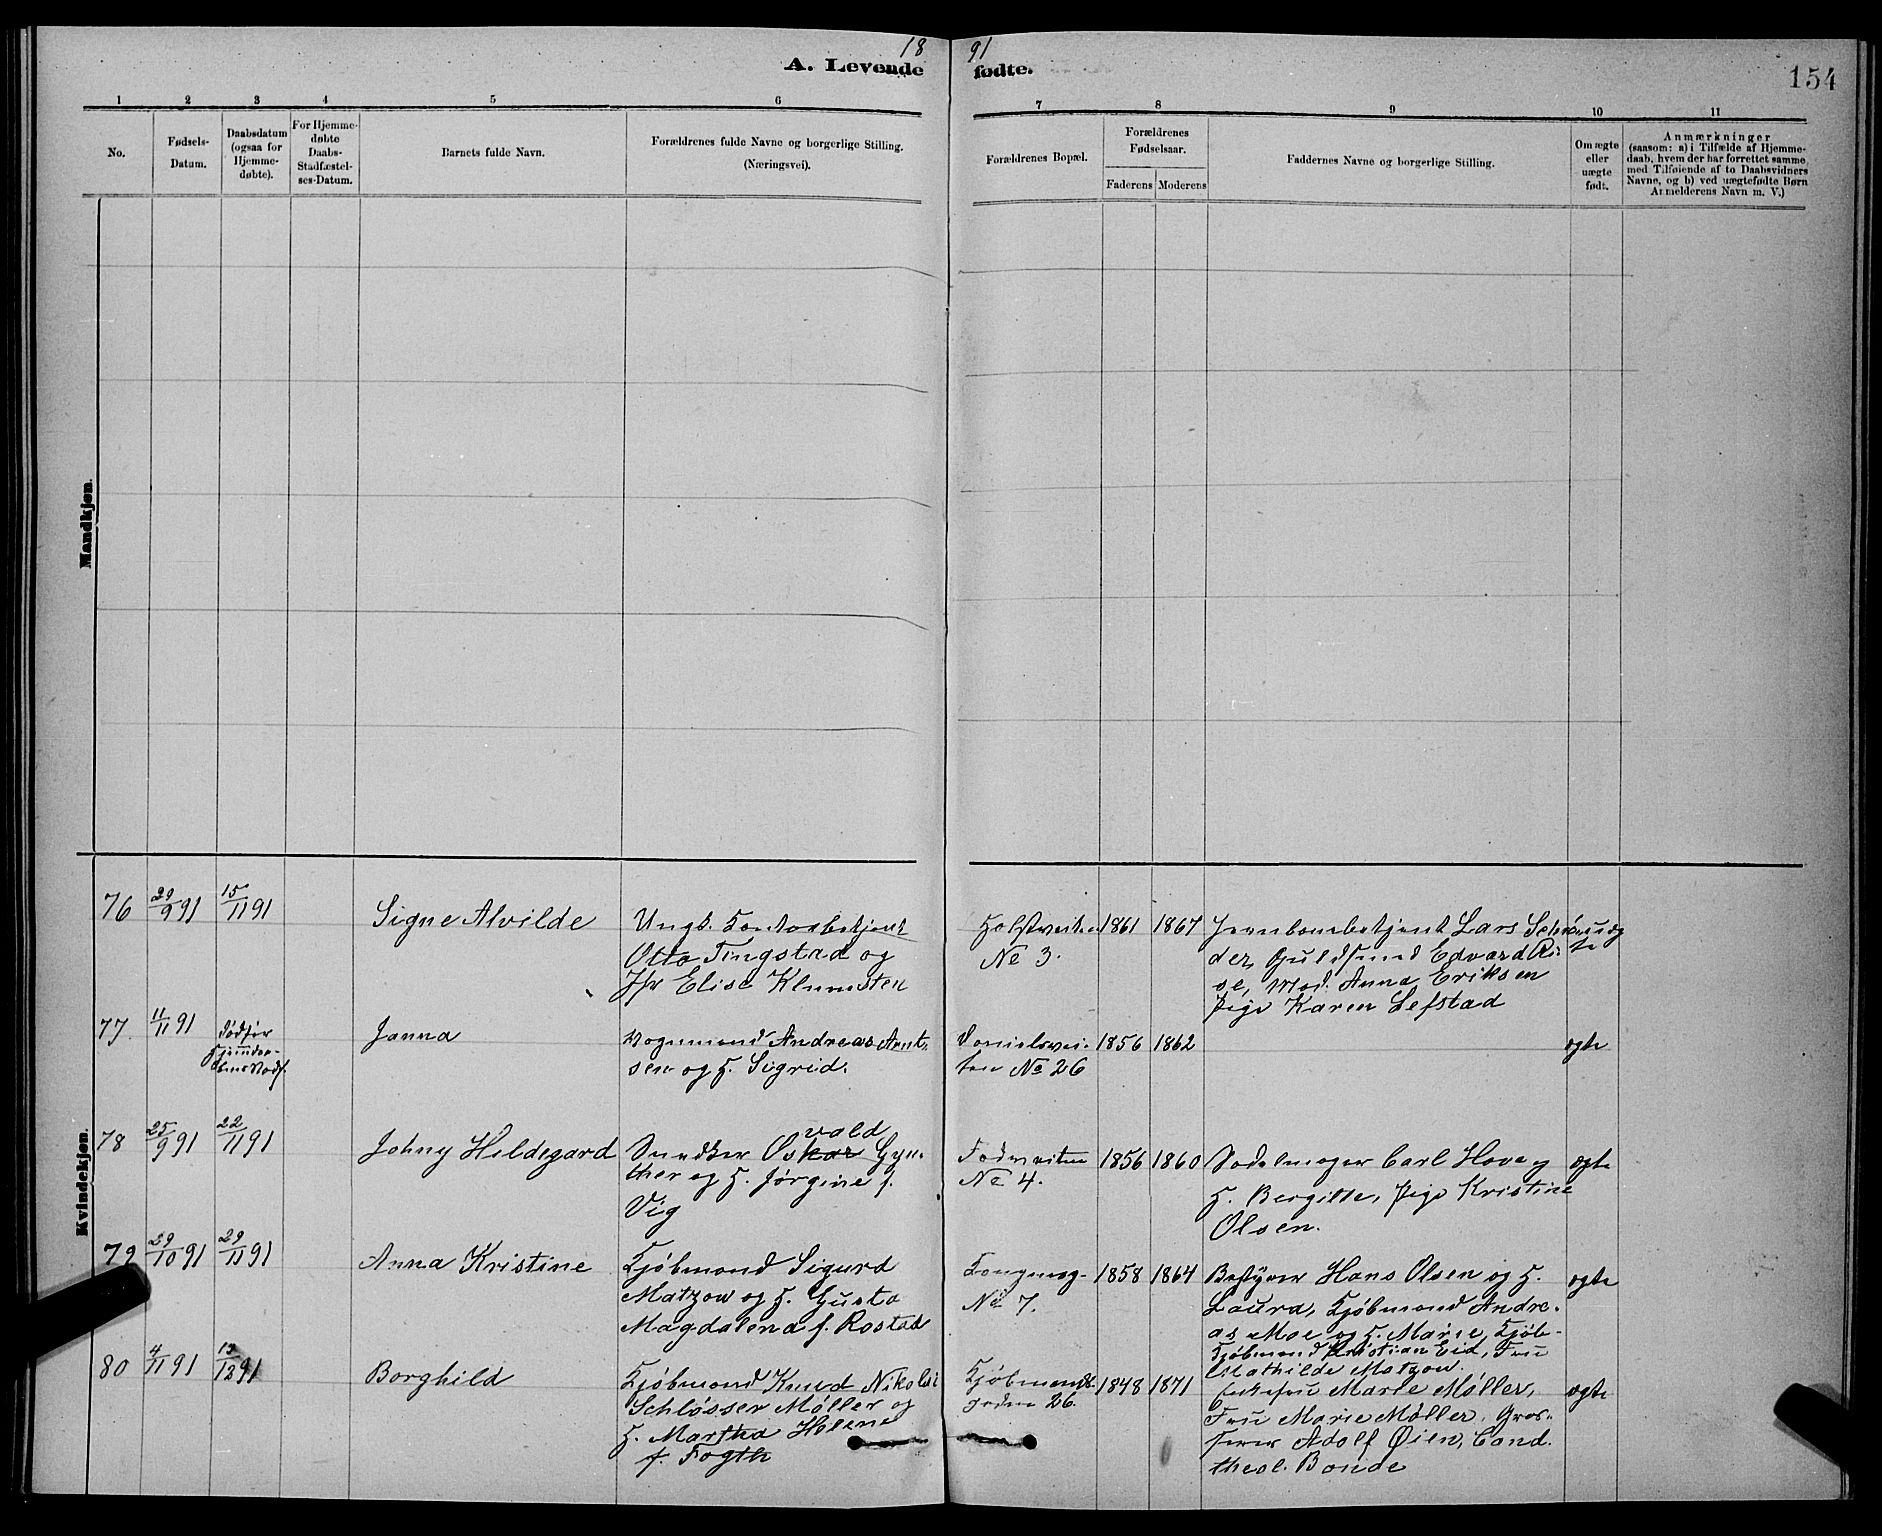 18 91
A. Levende fødte.
154
1 2 3 4 5 6 7 8 9 10 11
No.
Fødsels-
Datum.
Daabsdatum
(ogsaa for
Hjemme-
døbte).
For Hjemme-
døbte
Daabs-
Stadfæstel-
ses-Datum.
Barnets fulde Navn.
Forældrenes fulde Navne og borgerlige Stilling.
(Næringsvei).
Forældrenes Bopæl.
Forældrenes
Fødselsaar.
Faderens Moderens
Faddernes Navne og borgerlige Stilling.
Om ægte
eller
uægte
født.
Anmærkninger
(saasom: a) i Tilfælde af Hjemme-
daab, hvem der har forrettet samme
med Tilføiende af to Daabsvidners
Navne, og b) ved uægtefødte Børn
Anmelderens Navn m. V.)
Mandkjøn.
Kvindekjøn.
76
29/9 91
15/11 91
Signe Alvilde
Ungk. Kontorbetjent
Otto Tingstad og
Elise Klumsten
No 3.
1861
1867
Jernbanebetjent Lars
Edvard Ri-
se, Mad. Anna Eriksen
Pige Karen Lefstad
77
11/11 91
Janna
Vognmand Andreas Arnt-
sen og H. Sigrid.
Danielsvei-
ten No 26
1856
1862
ægte
78
25/9 91
22/11 91
Johny Hildegard
vald
Snedker Oskar Gyn-
ther og H. Jørgine f.
Vig
No 4.
1856
1860
Sadelmager Carl Hove og
H. Bergitte, Pige Kristine
Olsen.
ægte
79
29/10 91
29/11 91
Anna Kristine
Kjøbmand Sigurd
Matzow og H. Gusta
Magdalena f. Rostad
Kongensg-
No 7.
1858
1864
Bestyrer Hans Olsen og H.
Laura, Kjøbmand Andre-
as Moe og H. Marie, Kjøb-
Kjøbmand Kristian Eid, Fru
Mathilde Matzow.
ægte
80
4/11 91
13/12 91
Borghild
Kjøbmand Knud Nikolai
Schlösser Møller og
H. Martha Helene
f. Fogth
Kjøbmands-
gaden 26.
1848
1871
Enkefru Marie Møller,
Fru Marie Møller, Gros-
serer Adolf Øien, Cand.
theol. Bonde
ægte